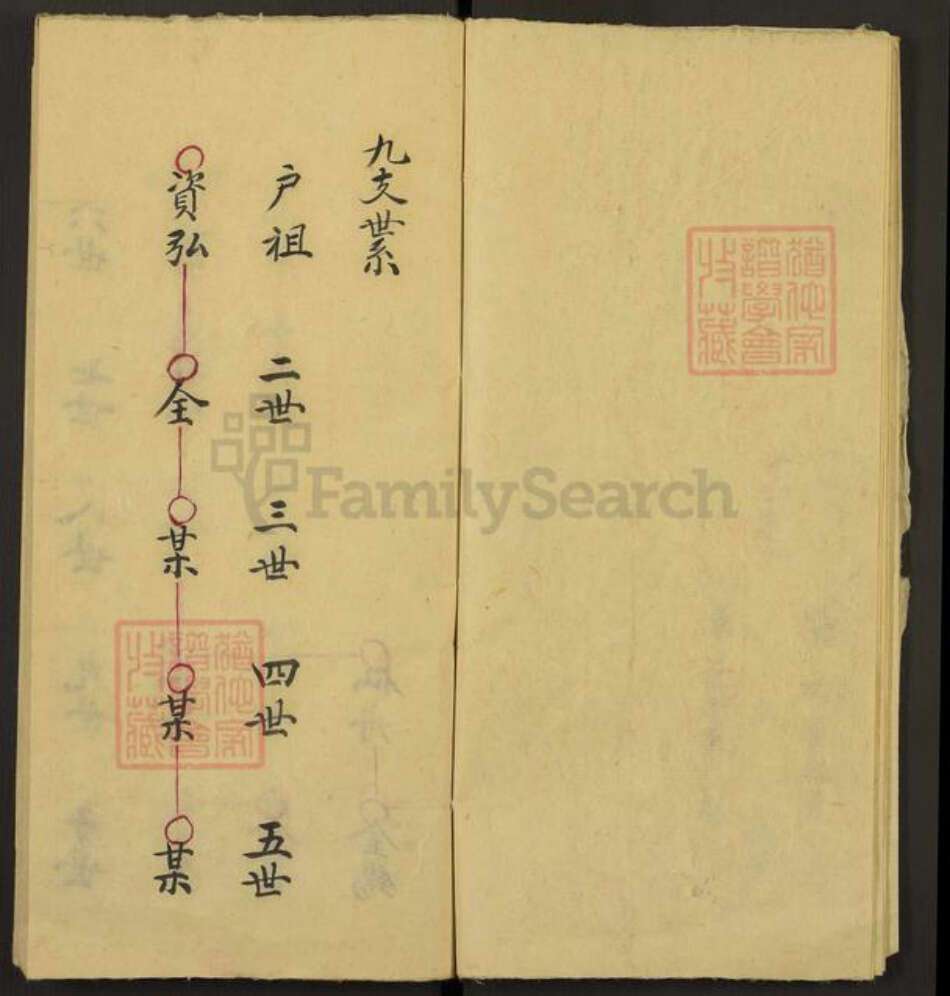 九支世系
户祖 二世 三世 四世 五世
資弘 全 某 某 某
猶他家
譜學會
收藏
猶他家
譜學會
收藏
FamilySearch